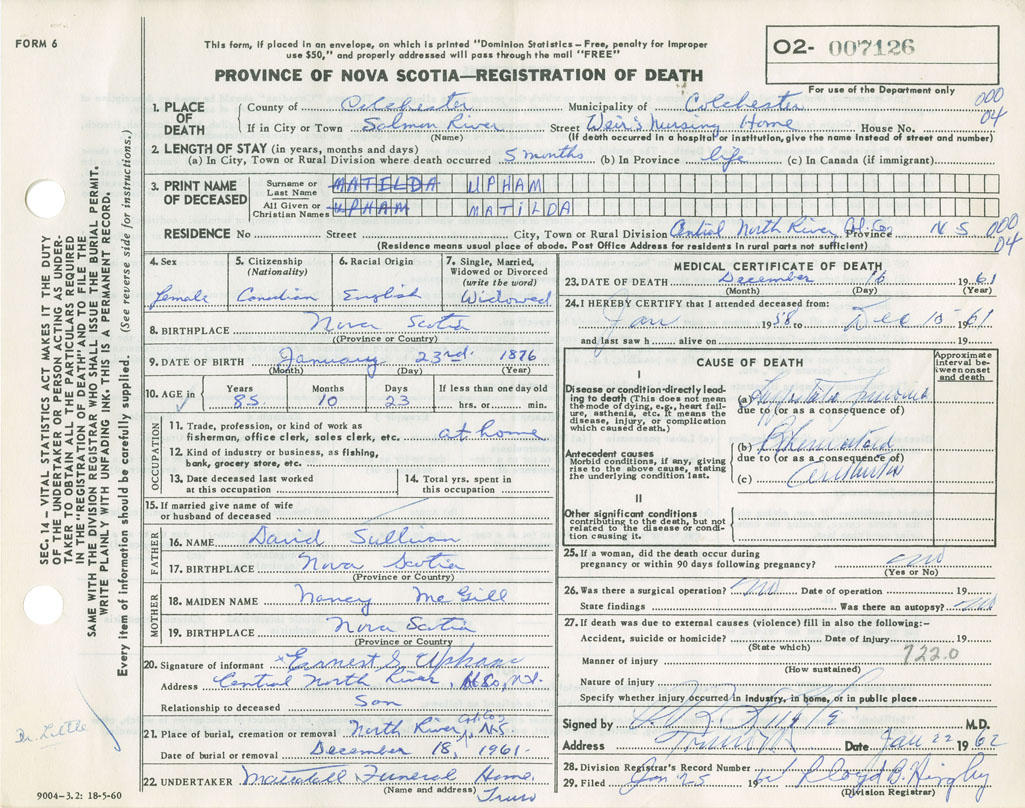 FORM 6
This form, if placed in an envelope, on which is printed "Dominion Statistics—Free, penalty for Improper
use $50," and properly addressed will pass through the mail "FREE"
O2- 007126
PROVINCE OF NOVA SCOTIA—REGISTRATION OF DEATH
For use of the Department only
000
04
1. PLACE OF DEATH
County of Colchester Municipality of Colchester
If in City or Town Salmon River Street Weir's Nursing Home House No.
(Name) (If death occurred in a hospital or institution, give the name instead of street and number)
2. LENGTH OF STAY (in years, months and days)
(a) In City, Town or Rural Division where death occurred 5 months (b) In Province life (c) In Canada (if immigrant)
3. PRINT NAME OF DECEASED
Surname or Last Name MATILDA UPHAM
All Given or Christian Names UPHAM MATILDA
RESIDENCE No Street City, Town or Rural Division Central North River Col. Co Province N S
000
04
(Residence means usual place of abode. Post Office Address for residents in rural parts not sufficient)
4. Sex
female
5. Citizenship
(Nationality)
Canadian
6. Racial Origin
English
7. Single, Married,
Widowed or Divorced
(write the word)
Widowed
8. BIRTHPLACE Nova Scotia
(Province or Country)
9. DATE OF BIRTH January 23rd 1876
(Month) (Day) (Year)
10. AGE in
Years Months Days If less than one day old
85 10 23 hrs. or min.
OCCUPATION
11. Trade, profession, or kind of work as
fisherman, office clerk, sales clerk, etc. at home
12. Kind of industry or business, as fishing,
bank, grocery store, etc.
13. Date deceased last worked
at this occupation
14. Total yrs. spent in
this occupation
15. If married give name of wife
or husband of deceased
FATHER
16. NAME David Sullivan
17. BIRTHPLACE Nova Scotia
(Province or Country)
MOTHER
18. MAIDEN NAME Nancy McGill
19. BIRTHPLACE Nova Scotia
(Province or Country)
20. Signature of informant Earnest S. Upham
Address Central North River, Col. Co, N.S.
Relationship to deceased Son
21. Place of burial, cremation or removal North River, Col. Co, N.S.
Date of burial or removal December 18, 1961.
22. UNDERTAKER Funeral Home
(Name and address) Truro
9004-3.2: 18-5-60
MEDICAL CERTIFICATE OF DEATH
23. DATE OF DEATH December 1961
(Month) (Day) (Year)
24. I HEREBY CERTIFY that I attended deceased from:
Jan 1958 to Dec 1961
and last saw h alive on 19
CAUSE OF DEATH
Approximate
interval between onset
and death
I
Disease or condition directly leading to death (This does not mean
the mode of dying, e.g., heart failure, asthenia, etc. It means the
disease, injury, or complication
which caused death.)
(a)
due to (or as a consequence of)
Antecedent causes
Morbid conditions, if any, giving
rise to the above cause, stating
the underlying condition last.
(b) Rheumatoid
due to (or as a consequence of)
(c) Arthritis
II
Other significant conditions
contributing to the death, but not
related to the disease or condition causing it.
25. If a woman, did the death occur during
pregnancy or within 90 days following pregnancy? no
(Yes or No)
26. Was there a surgical operation? no Date of operation 19
State findings Was there an autopsy? no
27. If death was due to external causes (violence) fill in also the following:-
Accident, suicide or homicide? Date of injury 19
(State which)
722.0
Manner of injury
(How sustained)
Nature of injury
Specify whether injury occurred in industry, in home, or in public place
Signed by M.D.
Address Truro Date Jan 22 1962
28. Division Registrar's Record Number
29. Filed Jan 25 1962
(Division Registrar)
SEC. 14 — VITAL STATISTICS ACT MAKES IT THE DUTY
OF THE UNDERTAKER OR PERSON ACTING AS UNDERTAKER TO OBTAIN ALL THE PARTICULARS REQUIRED
IN THE "REGISTRATION OF DEATH" AND TO FILE THE
SAME WITH THE DIVISION REGISTRAR WHO SHALL ISSUE THE BURIAL PERMIT.
WRITE PLAINLY WITH UNFADING INK. THIS IS A PERMANENT RECORD.
Every item of information should be carefully supplied. (See reverse side for instructions.)
Dr. Little